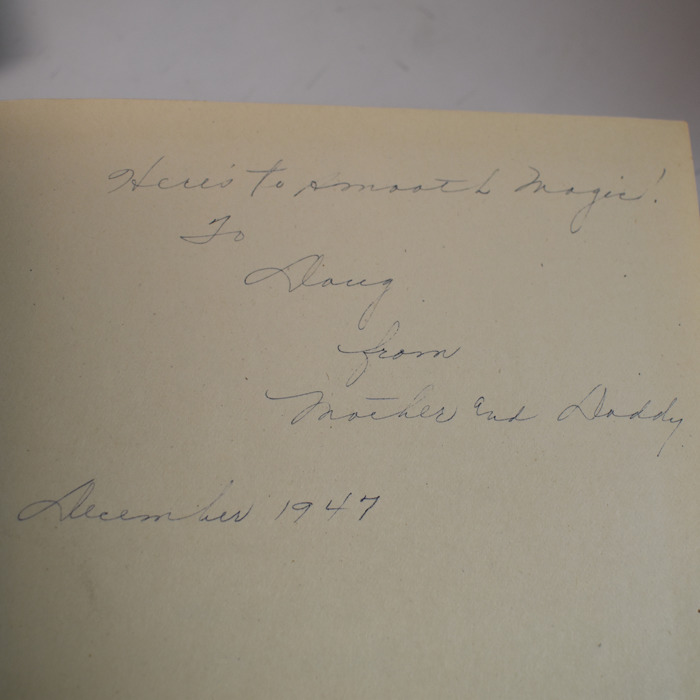 Here's to smooth Magic!
To
Doug
from
Mother and Daddy
December 1947